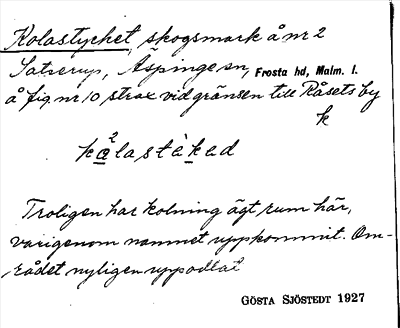 Kolastycket, skogsmark å nr 2
Satserup, Äspinge sn, Frosta hd, Malm. l.
å fig nr 10 strax vid gränsen till Råsets by
k
kålastèked
2
Troligen har kolning ägt rum här,
varigenom namnet uppkommit. Om-
rådet nyligen uppodlat
GÖSTA SJÖSTEDT 1927